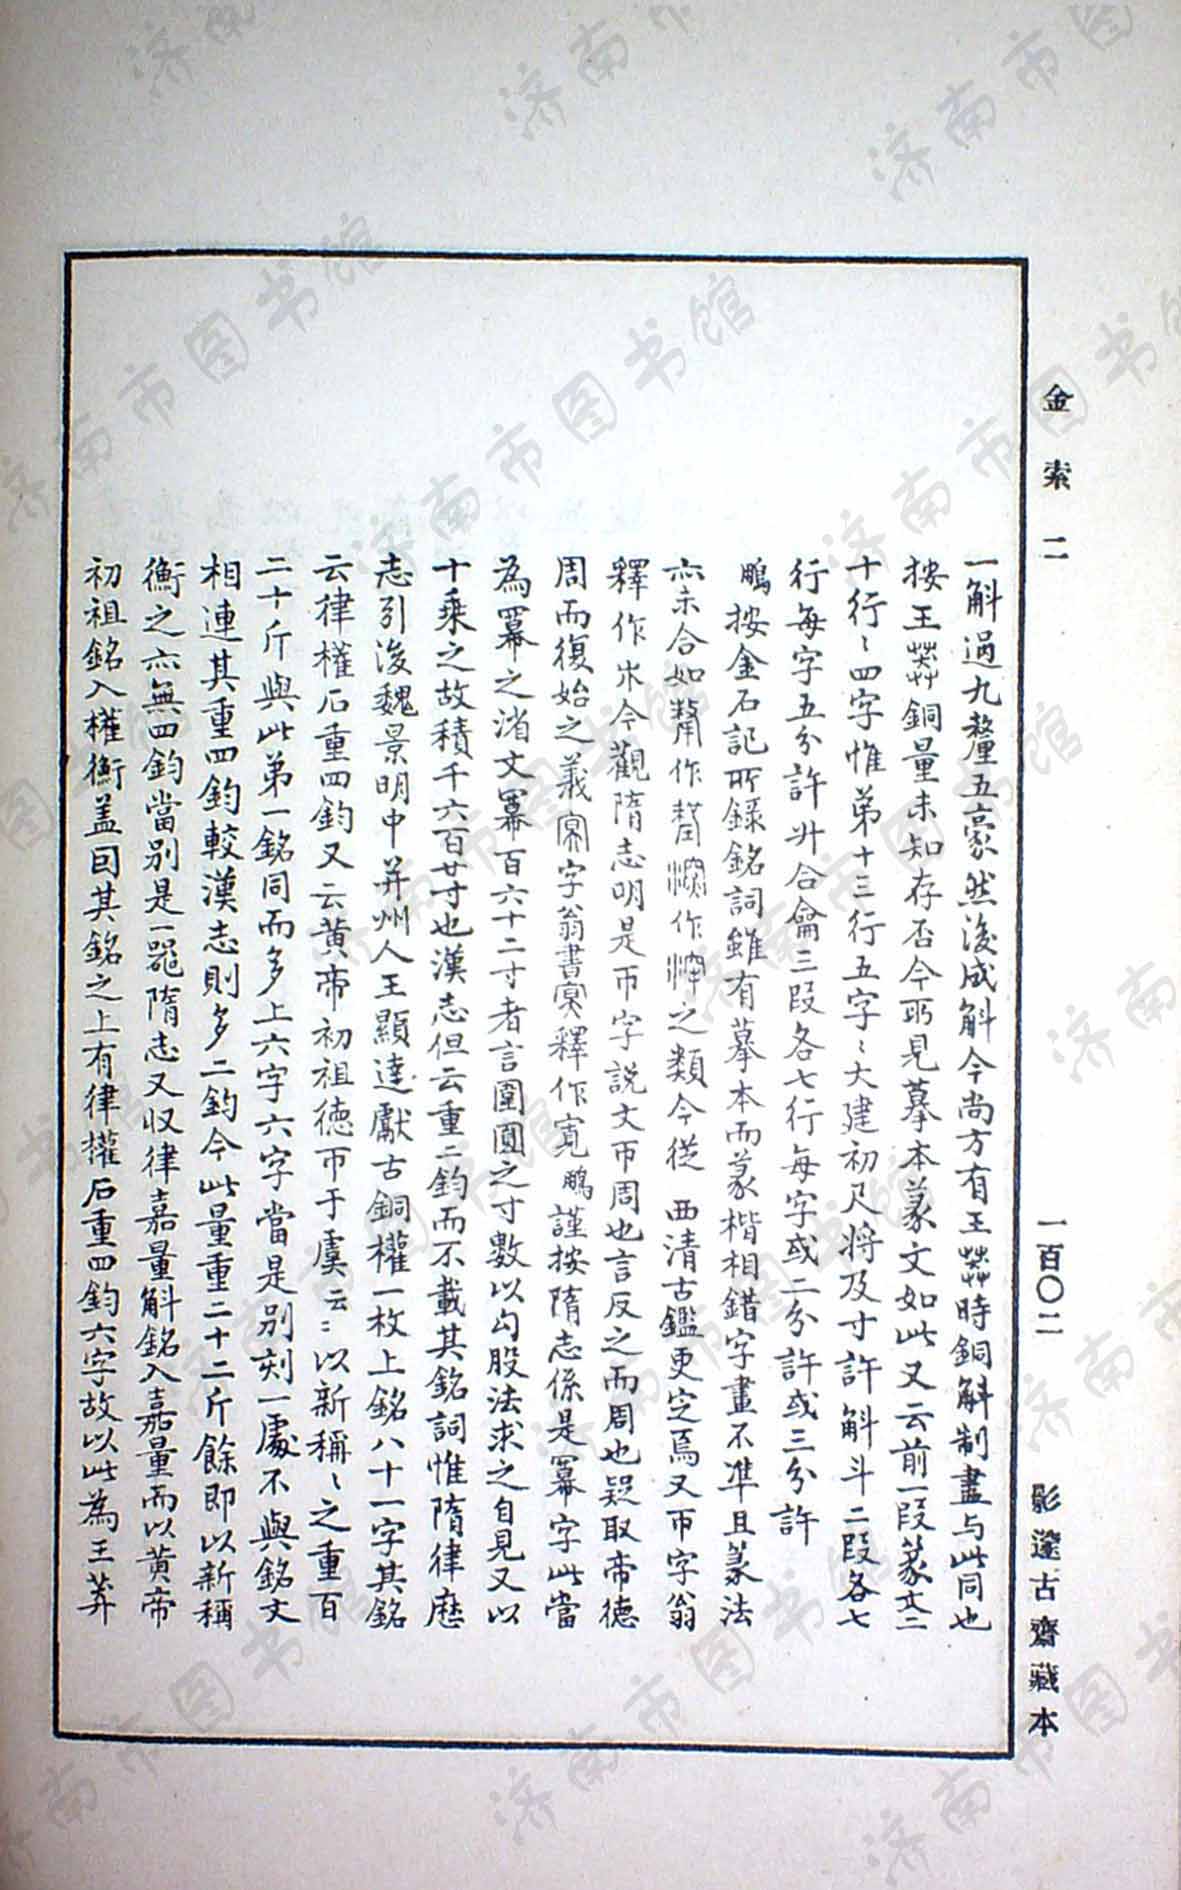 金索二
一百〇二
影邃古齋藏本
一斛過九釐五豪然後成斛今尚方有王莽時銅斛制盡与此同也
按王莽銅量未知存否今所見摹本篆文如此又云前一段篆文二
十行〻四字惟弟十三行五字〻大建初尺將及寸許斛斗二段各七
行每字五分許升合龠三段各七行每字或二分許或三分許
鵬按金石記所錄銘詞雖有摹本而篆楷相錯字畫不準且篆法
亦未合如作作之類今從西清古鑑更定焉又帀字翁
釋作朩今觀隋志明是帀字説文帀周也言反之而周也疑取帝德
周而復始之義字翁書釋作寬鵬謹按隋志係是冪字此當
為冪之渻文冪百六十二寸者言圍圓之寸數以勾股法求之自見又以
十乘之故積千六百廿寸也漢志但云重二鈞而不載其銘詞惟隋律歷
志引後魏景明中并州人王顯達獻古銅權一枚上銘八十一字其銘
云律權石重四鈞又云黃帝初祖德帀于虞云〻以新稱〻之重百
二十斤與此弟一銘同而多上六字六字當是別刻一處不與銘文
相連其重四鈞較漢志則多二鈞今此量重二十二斤餘即以新稱
衡之亦無四鈞當别是一器隋志又収律嘉量斛銘入嘉量而以黃帝
初祖銘入權衡盖因其銘之上有律權石重四鈞六字故以此為王莽